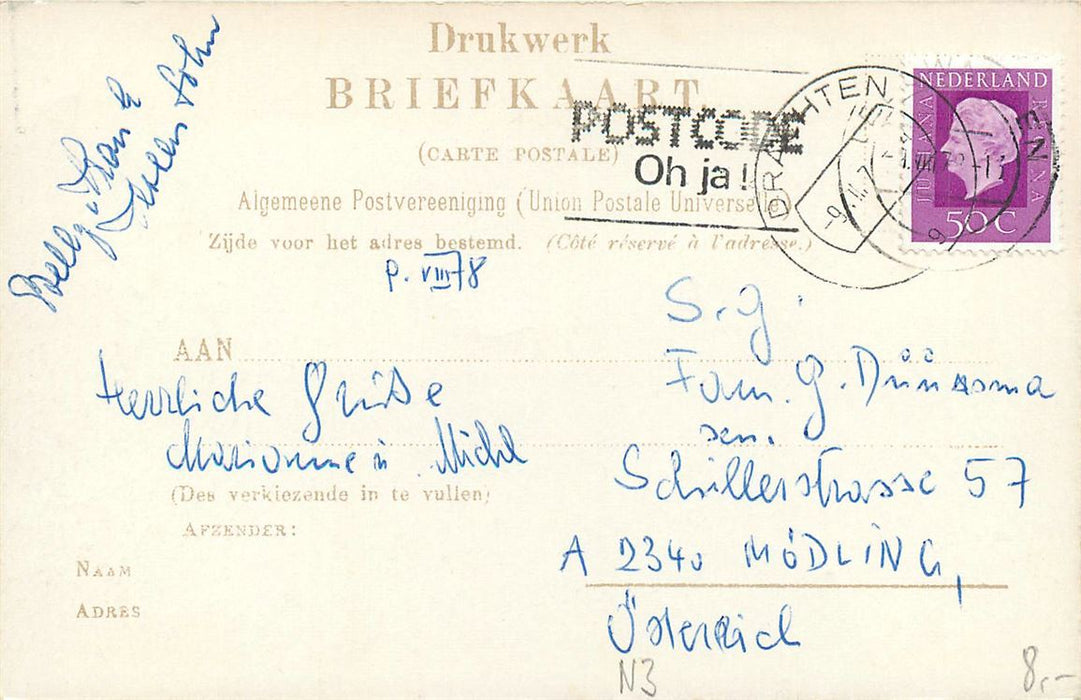 Drukwerk
BRIEFKAART
(CARTE POSTALE)
Algemeene Postvereeniging (Union Postale Universelle)
Zijde voor het adres bestemd. (Côté réservé à l'adresse.)
POSTCODE
Oh ja!
DRACHTEN
NEDERLAND
JULIANA REGINA
50 C
P. VIII 78
S. g.
AAN
Fam. G.
sen.
Herrliche Grüße
Marianne u. Michl
Schillerstrasse 57
(Des verkiezende in te vullen)
AFZENDER:
A 2340 MÖDLING,
NAAM
ADRES
Österreich
N3
8,-